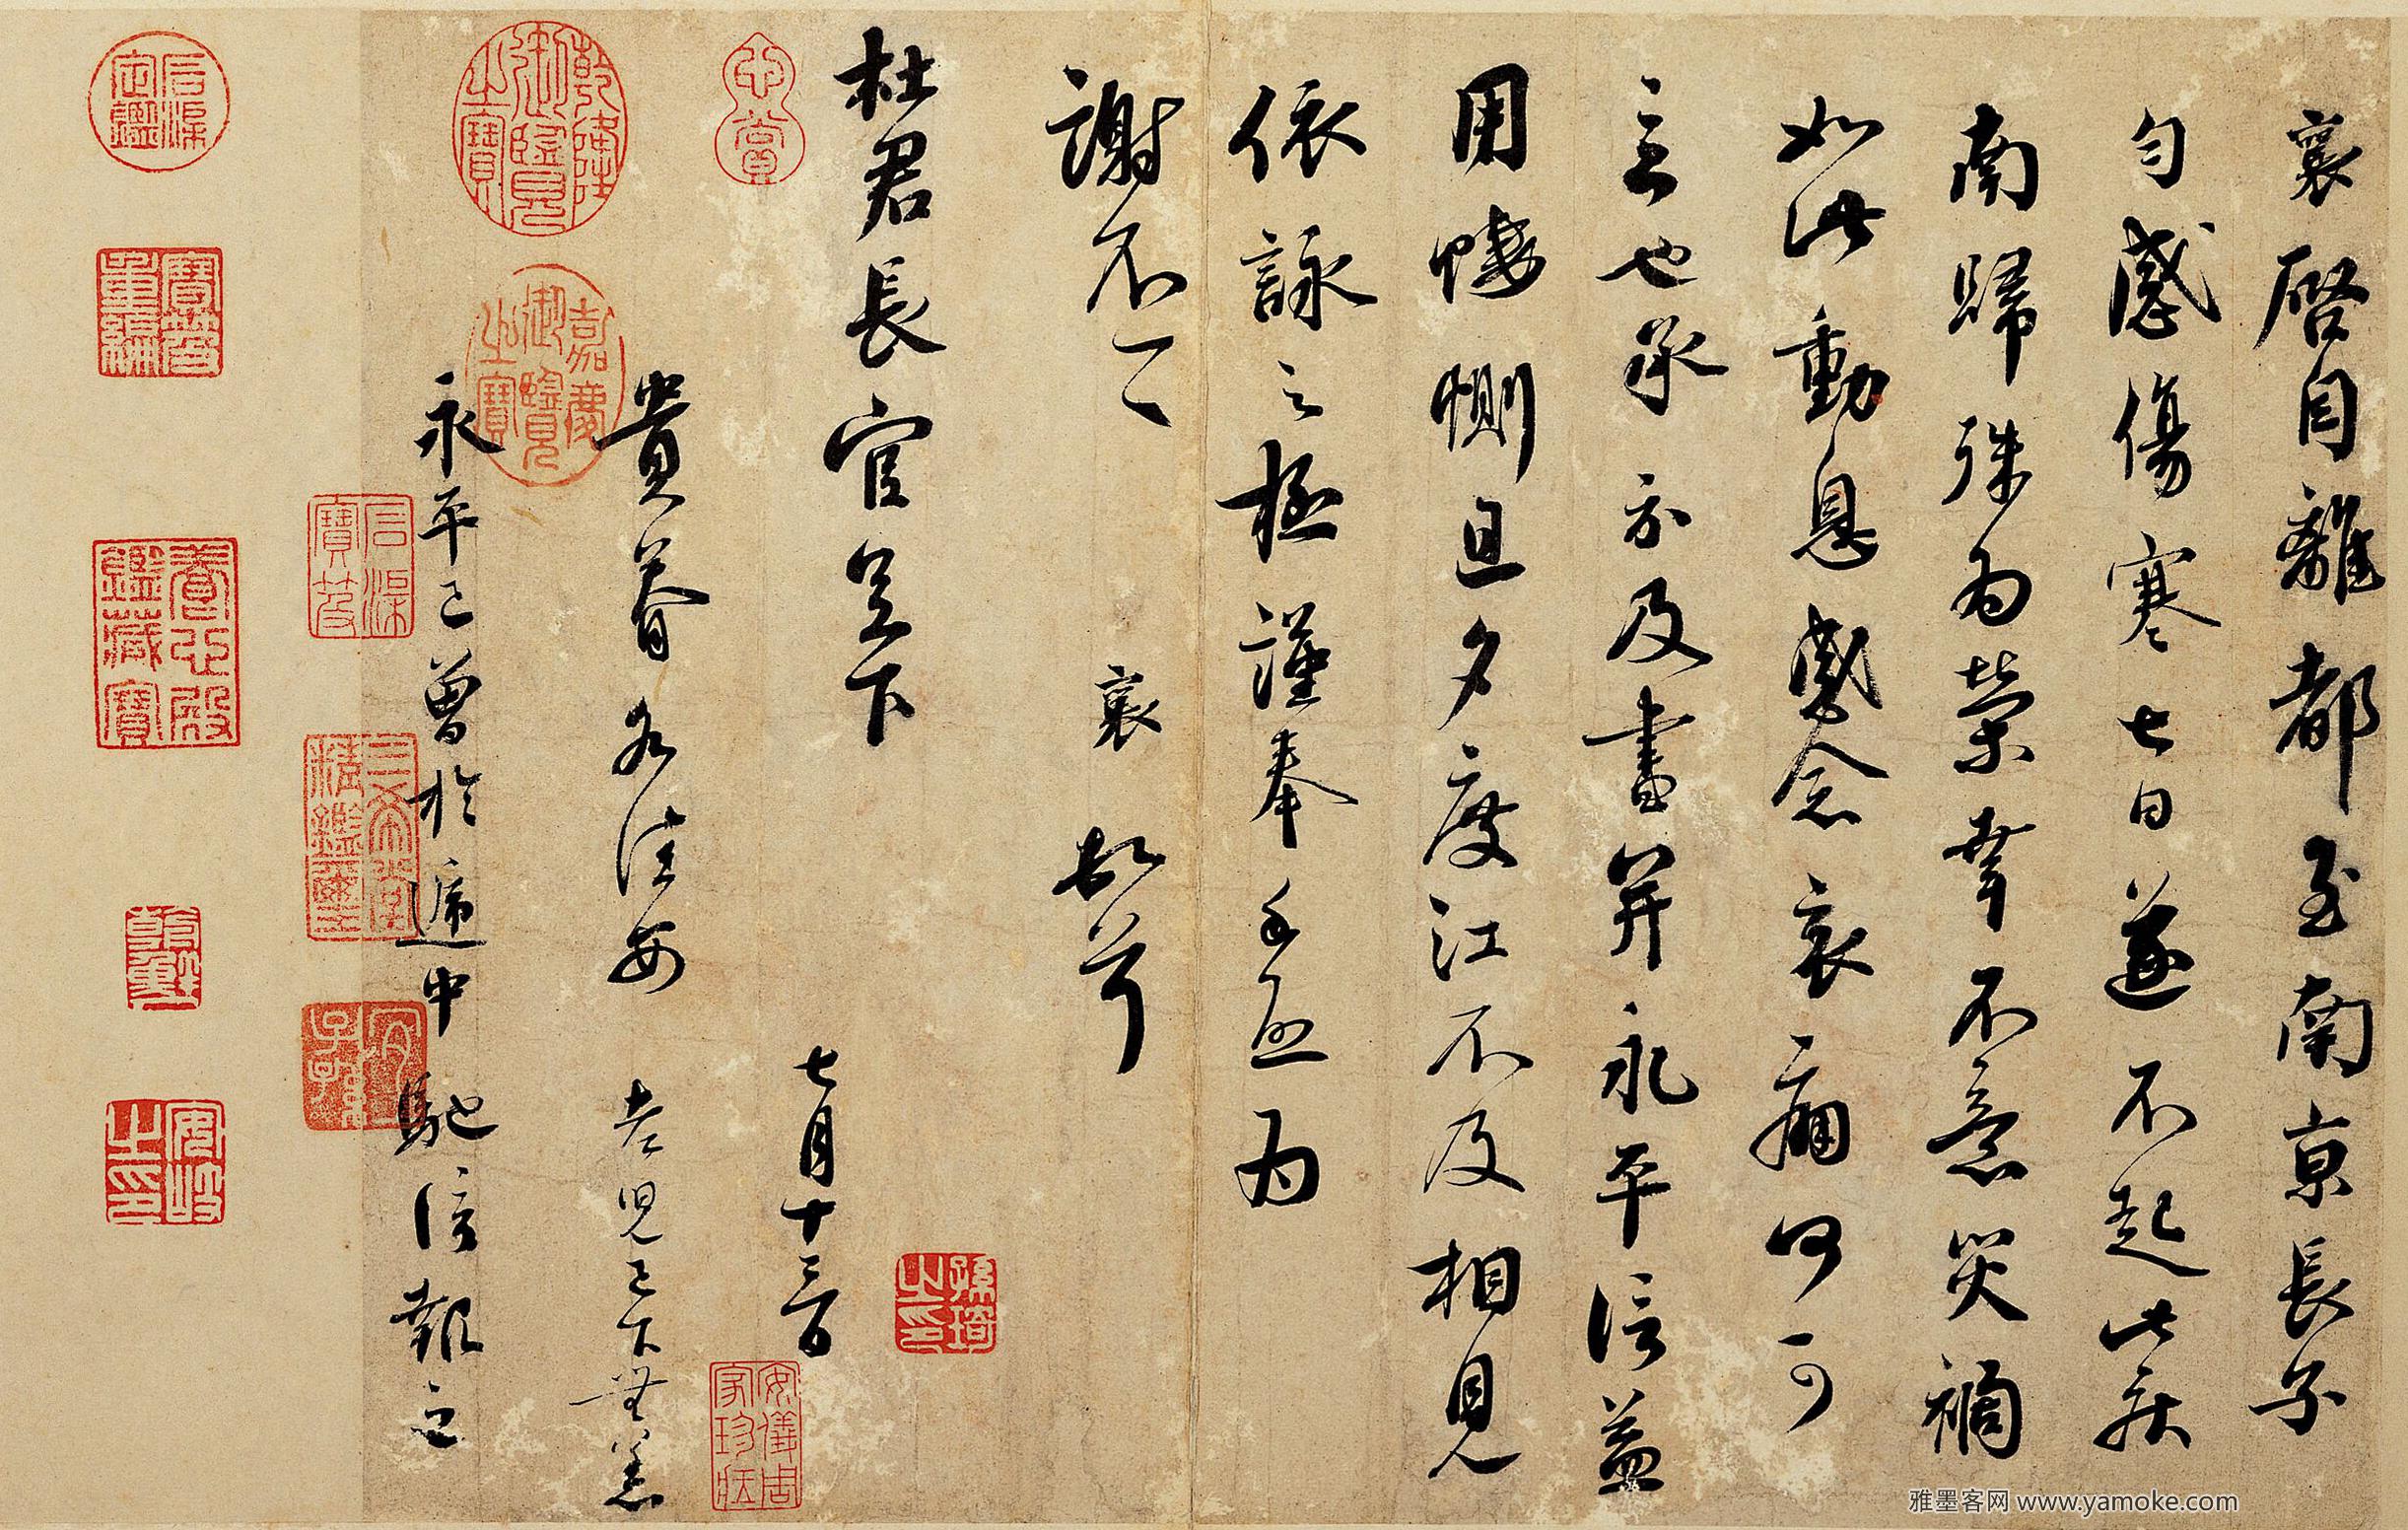 襄啓自離都至南京長子
勻感傷寒七日遂不起此疾
南歸殊為榮幸不意災禍
如此動息感念哀痛何可
言也承示及書并永平信益
用悽惻旦夕度江不及相見
依詠之極謹奉手啟為
謝不一一 襄 頓首
杜君長官足下
七月十三日
貴眷各佳安 老兒已下無恙
永平已曾於遞中馳信報之
乾隆御覽之寶
嘉慶御覽之寶
心賞
石渠定鑑
寶笈重編
養心殿鑑藏寶
石渠寶笈
三希堂精鑑璽
宜子孫
乾隆
安岐之印
安儀周家珍藏
孫琦之印
雅墨客网 www.yamoke.com